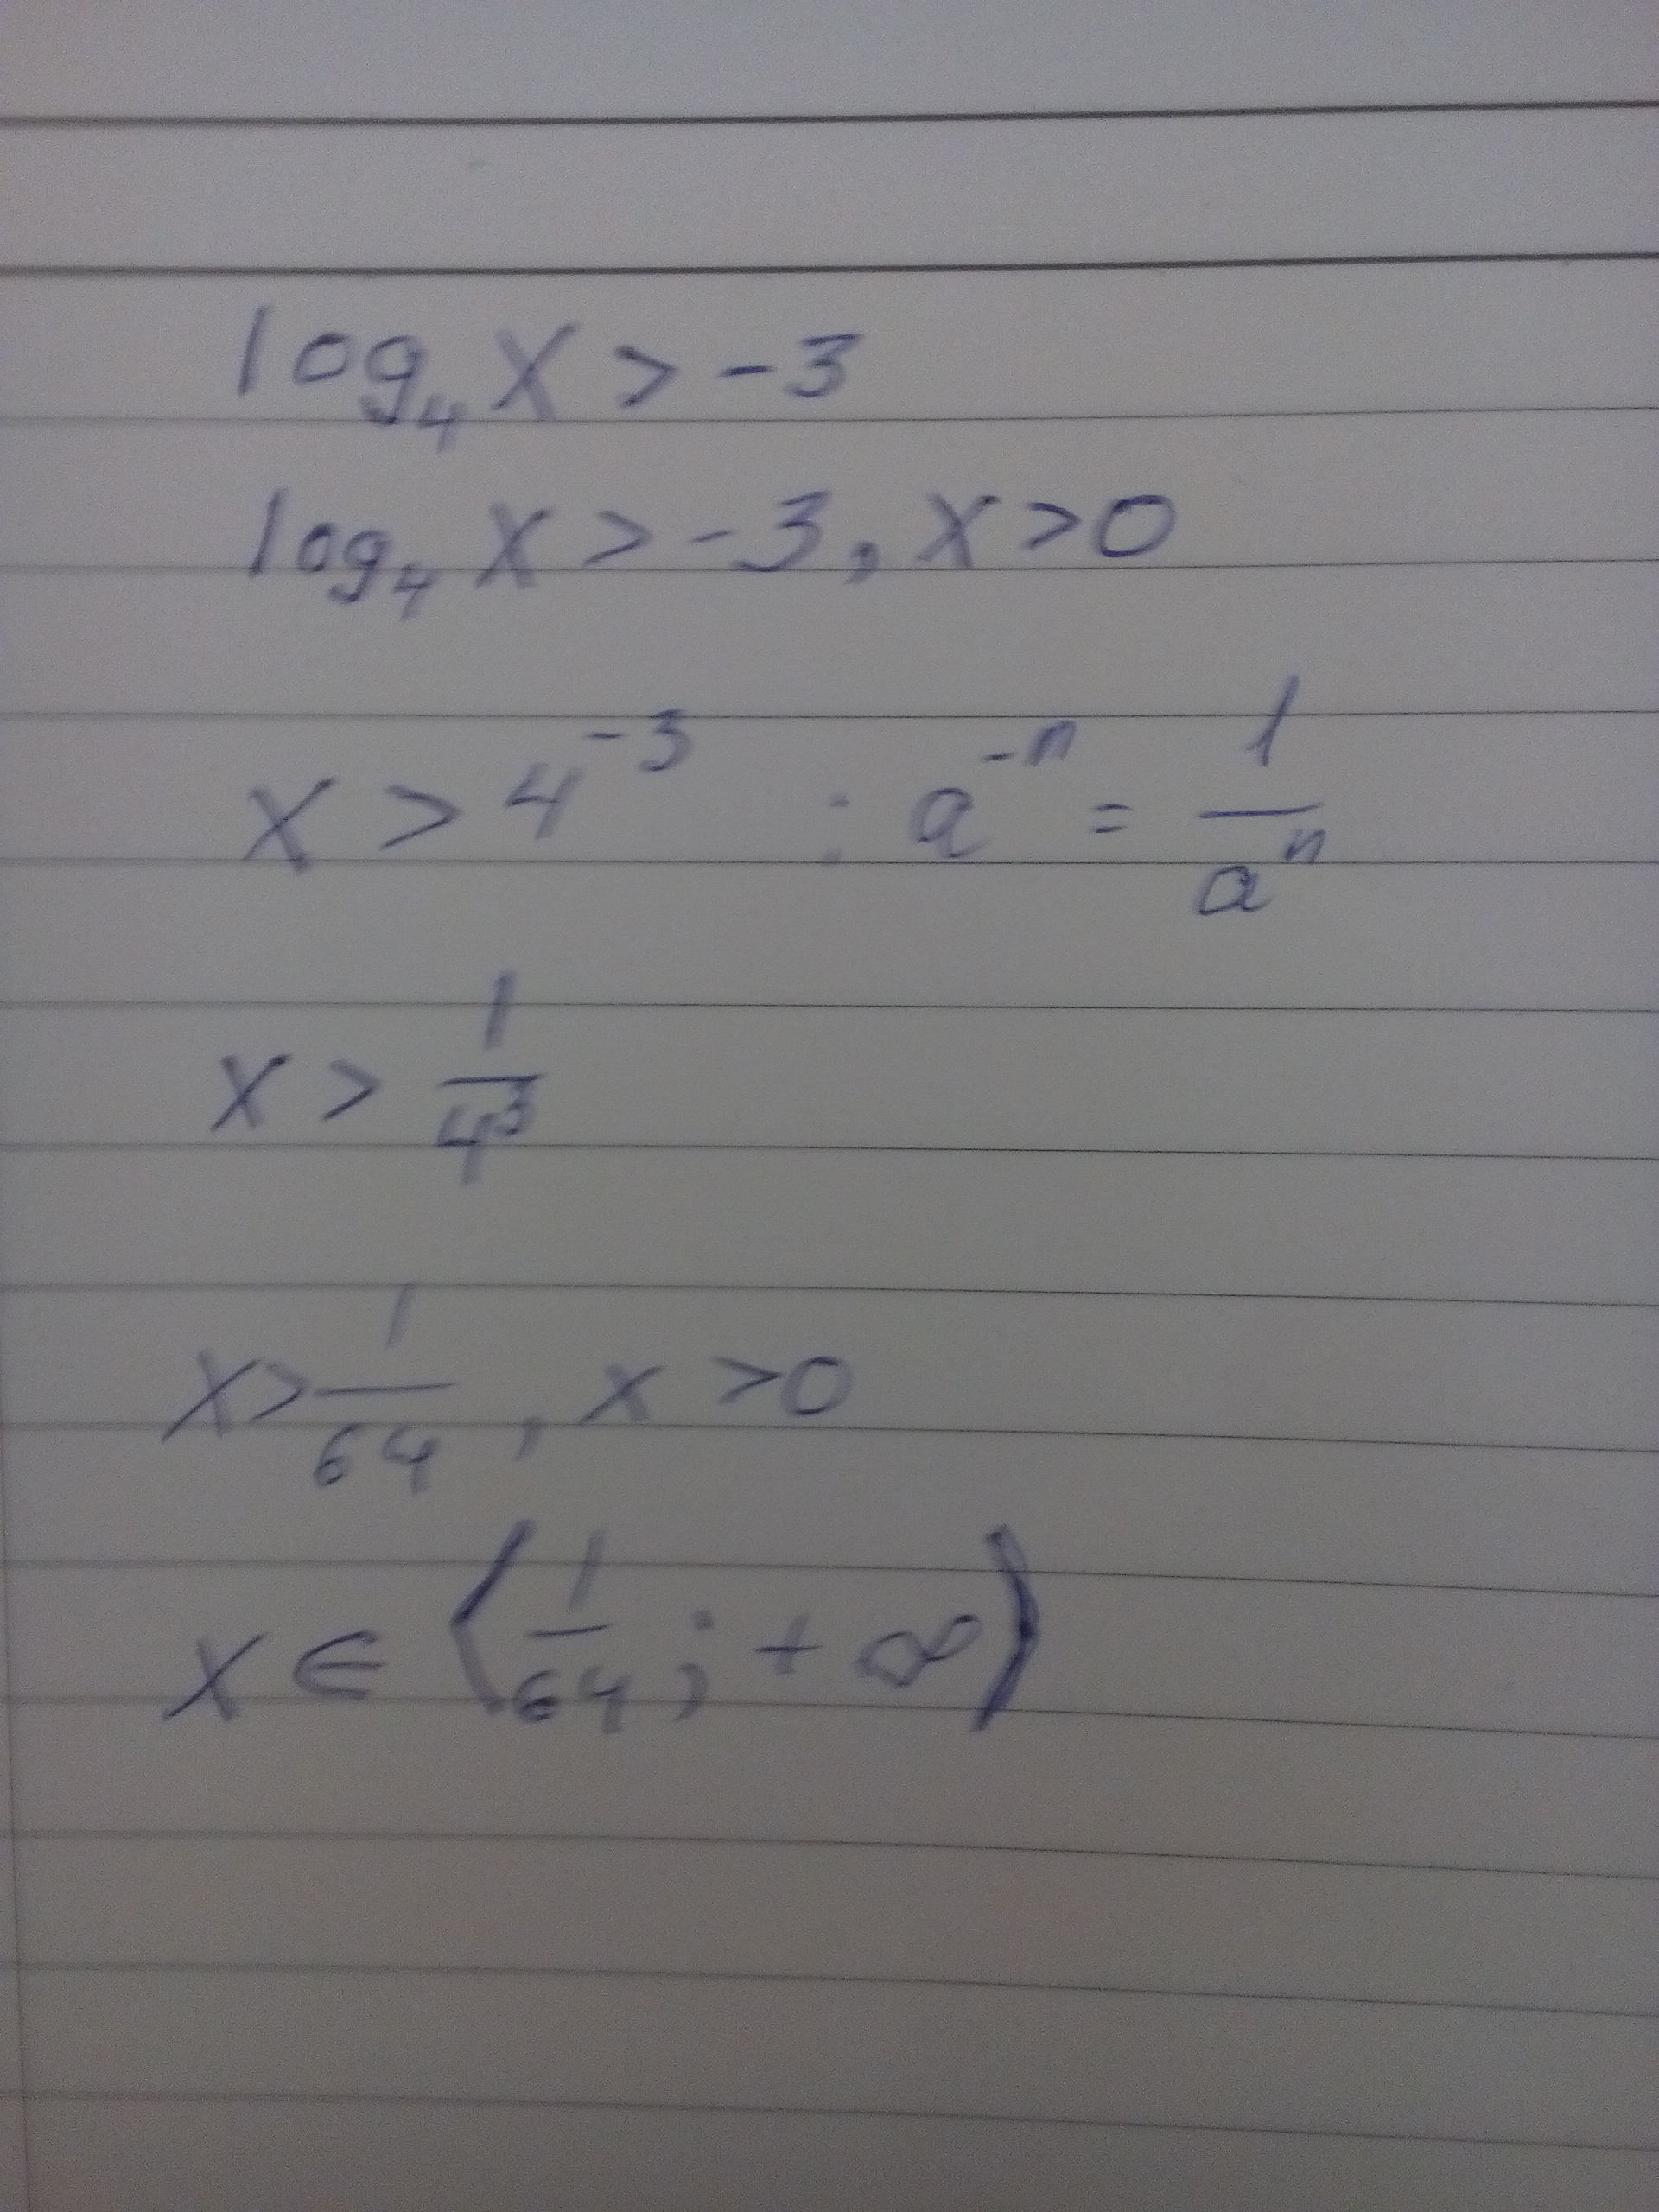 log₄ x > -3
log₄ x > -3, x > 0
x > 4⁻³ ; a⁻ⁿ = 1/aⁿ
x > 1/4³
x > 1/64, x > 0
x ∈ (1/64; +∞)